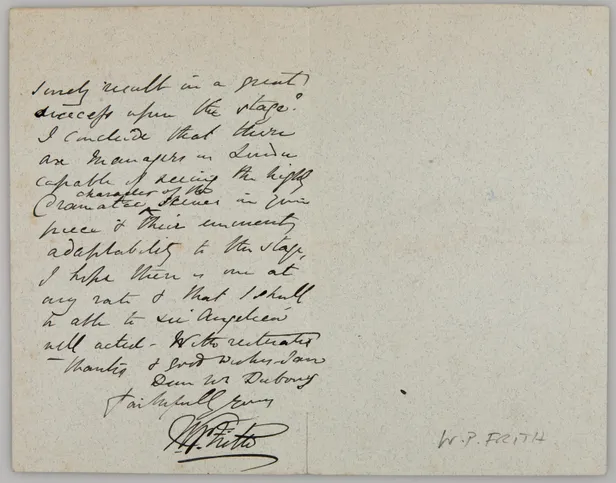 surely result in a great
success upon the stage.
I conclude that there
are Managers in London
capable of seeing the highly
character of the
dramatic scenes in your
piece & their eminently
adaptability to the stage,
I hope there is one at
any rate & that I shall
be able to see "Angelica"
well acted - With reiterated
thanks & good wishes I am
Dear Mr Dubourg
faithfully yours
W. P. Frith
W. P. FRITH.